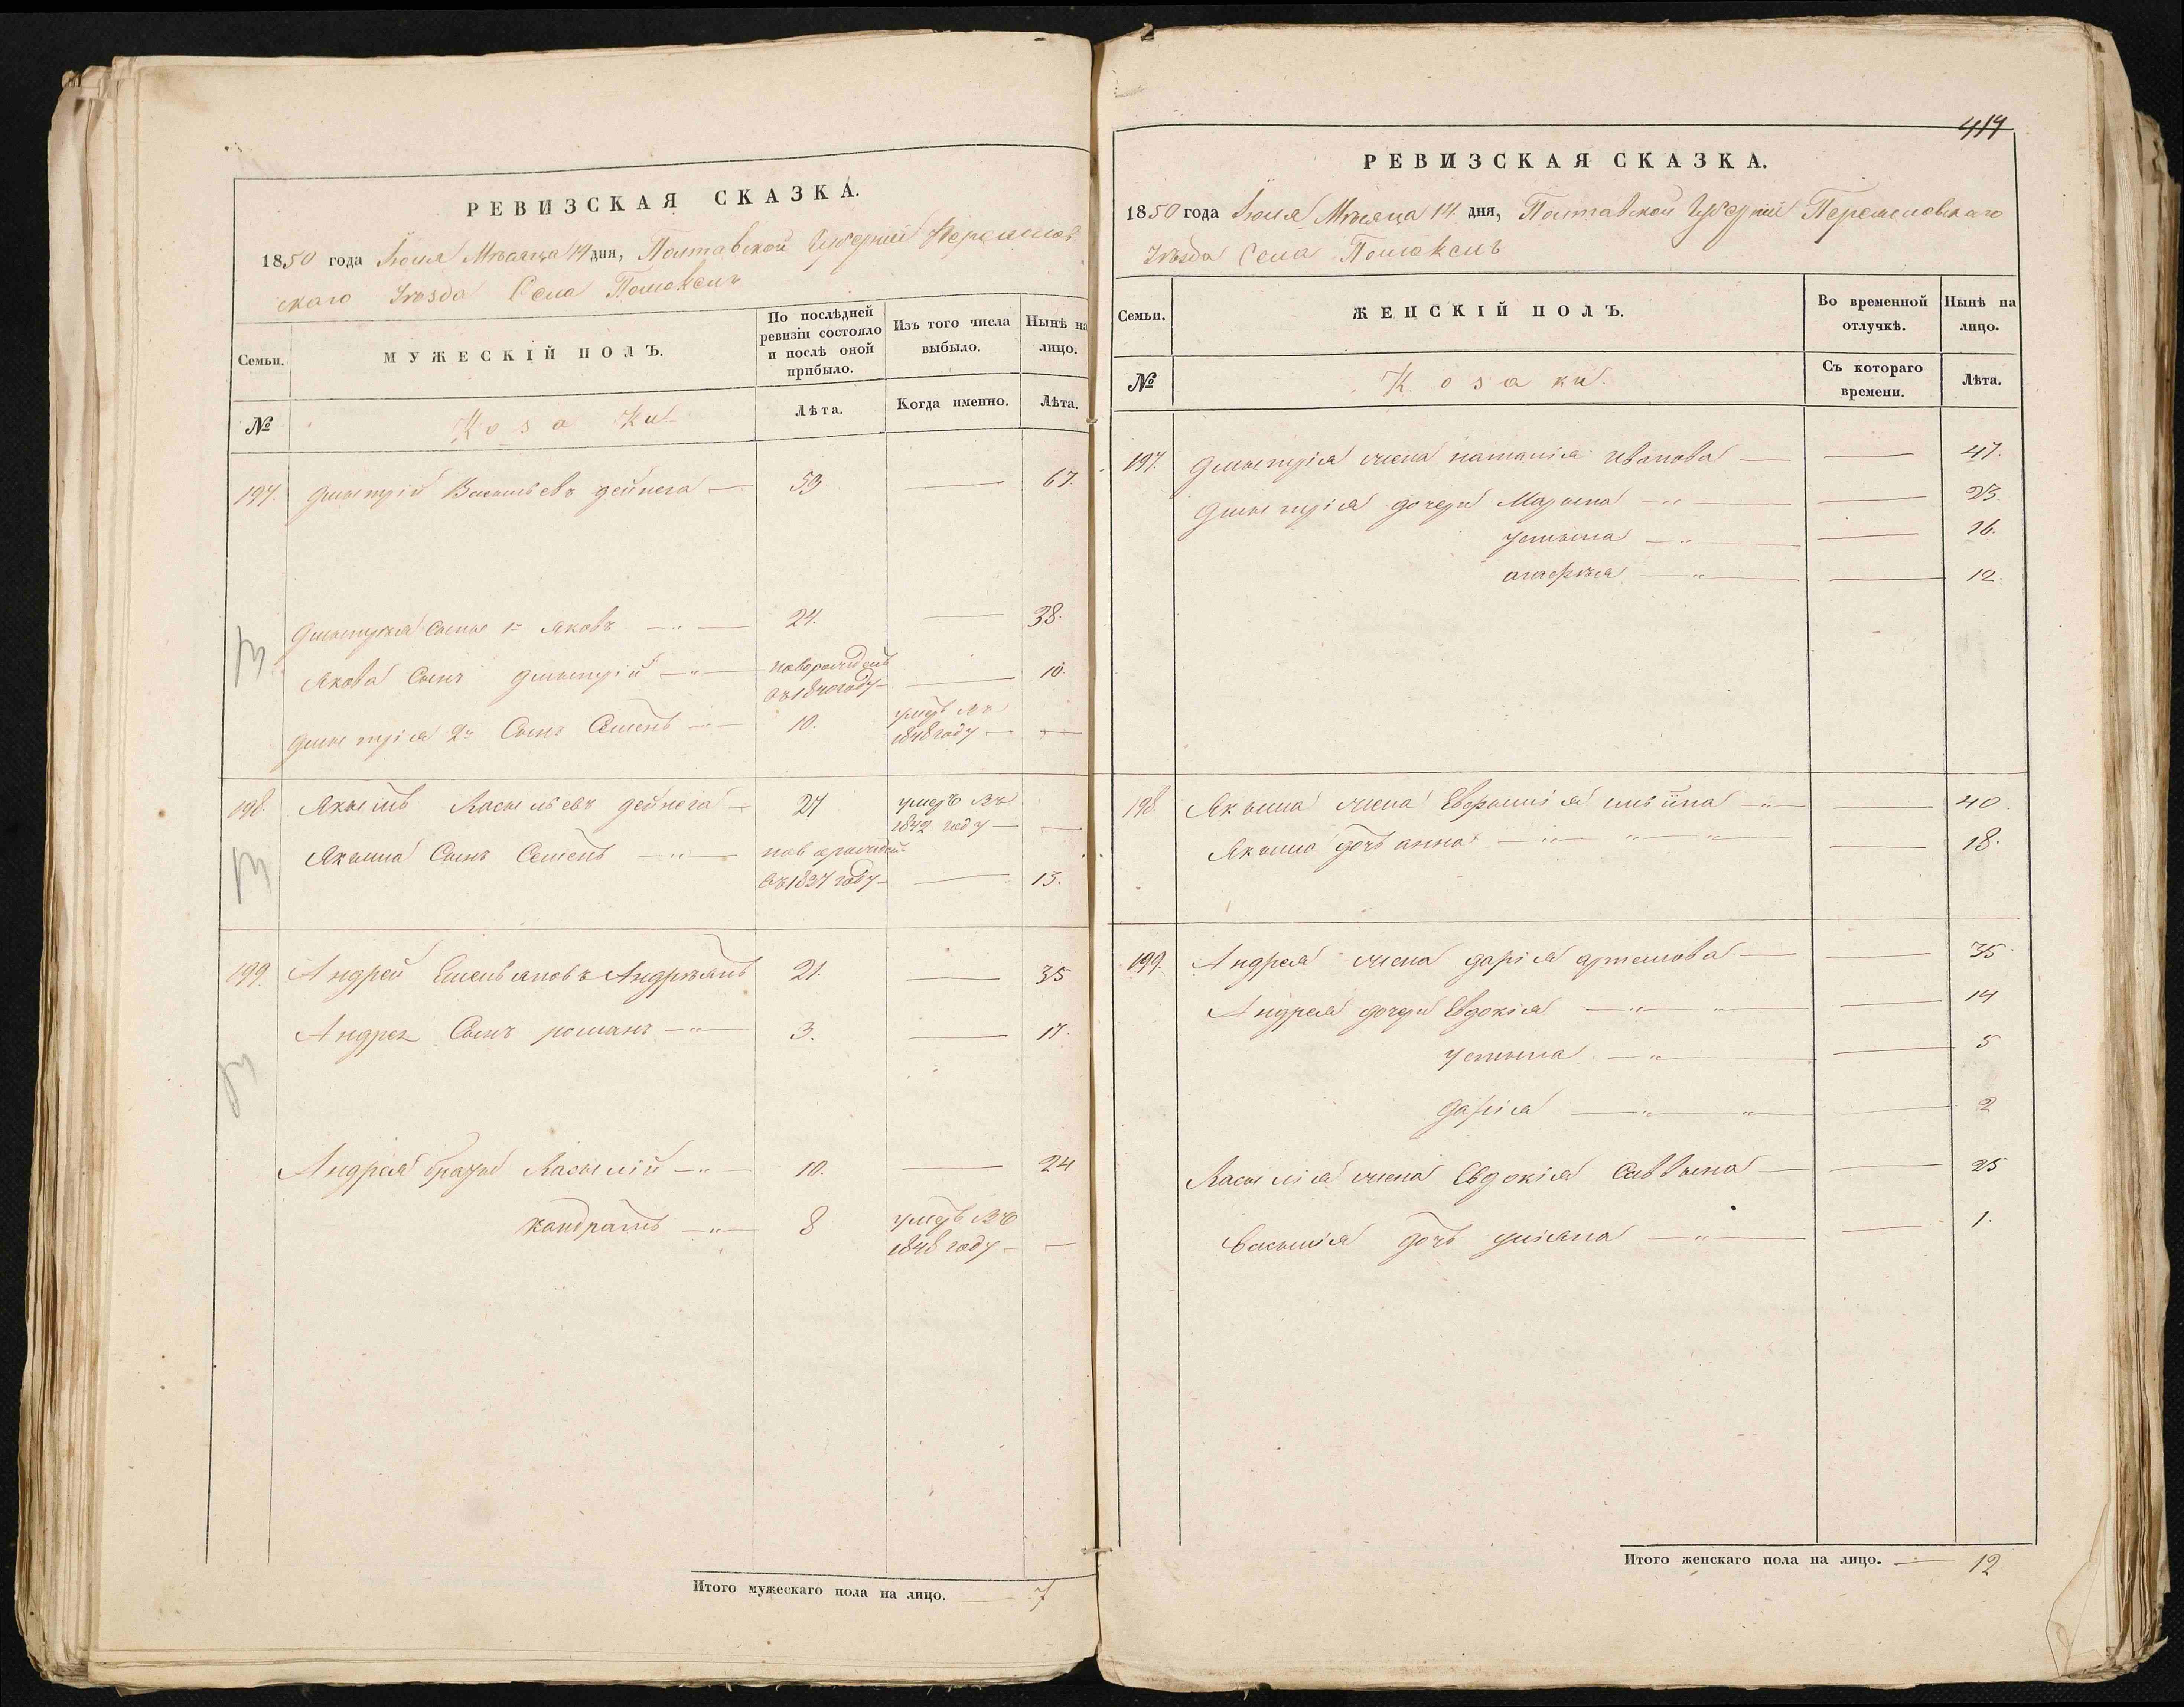 РЕВИЗСКАЯ СКАЗКА.
1850 года Іюля Мѣсяца 14 дня, Полтавской Губерніи Переяслов
скаго Уѣзда Села Помоклъ
Семьи.
МУЖЕСКІЙ ПОЛЪ.
По послѣдней ревизіи состояло и послѣ оной прибыло.
Изъ того числа выбыло.
Нынѣ на лицо.
№
Козаки
Лѣта.
Когда именно.
Лѣта.
197. Дмытрій Васыльевъ дейнега — 53 — 67.
Дмытрія Сыны 1й Яковъ — 24. — 38.
Якова Сынъ Дмытрій — новорожденъ — 10.
въ 1840 году —
Дмытрія 2й Сынъ Семенъ — 10. умеръ въ
1848 году — —
198. Якымъ Васыльевъ дейнега — 27 умеръ въ
1842 году — —
Якыма Сынъ Семенъ — новорожденъ
въ 1837 году — — 13.
199. Андрей Емельяновъ Андріяшъ 21. — 35
Андрея Сынъ романъ — 3. — 17.
Андрея браты Васылій — 10. — 24
кондратъ — 8 умеръ въ
1848 году — —
Итого мужескаго пола на лицо. — 7
419
РЕВИЗСКАЯ СКАЗКА.
1850 года Іюля Мѣсяца 14. дня, Полтавской Губерніи Переясловскаго
Уѣзда Села Помоклъ
Семьи.
ЖЕНСКІЙ ПОЛЪ.
Во временной отлучкѣ.
Нынѣ на лицо.
№
Козаки.
Съ котораго времени.
Лѣта.
197. Дмытрія жена наталія иванова — — 47.
Дмытрія дочери Марына — — 23.
устына — — 16.
агафія — — 12.
198. Якыма жена Евфымія — — 40.
Якыма дочь анна — — 18.
199. Андрея жена дарія артемова — — 35
Андрея дочери Евдокія — — 14
устына — — 5
Дарія — — 2
Васылія жена Евдокія Саввына — — 25
Васылія дочь уліяна — — 1.
Итого женскаго пола на лицо. — 12